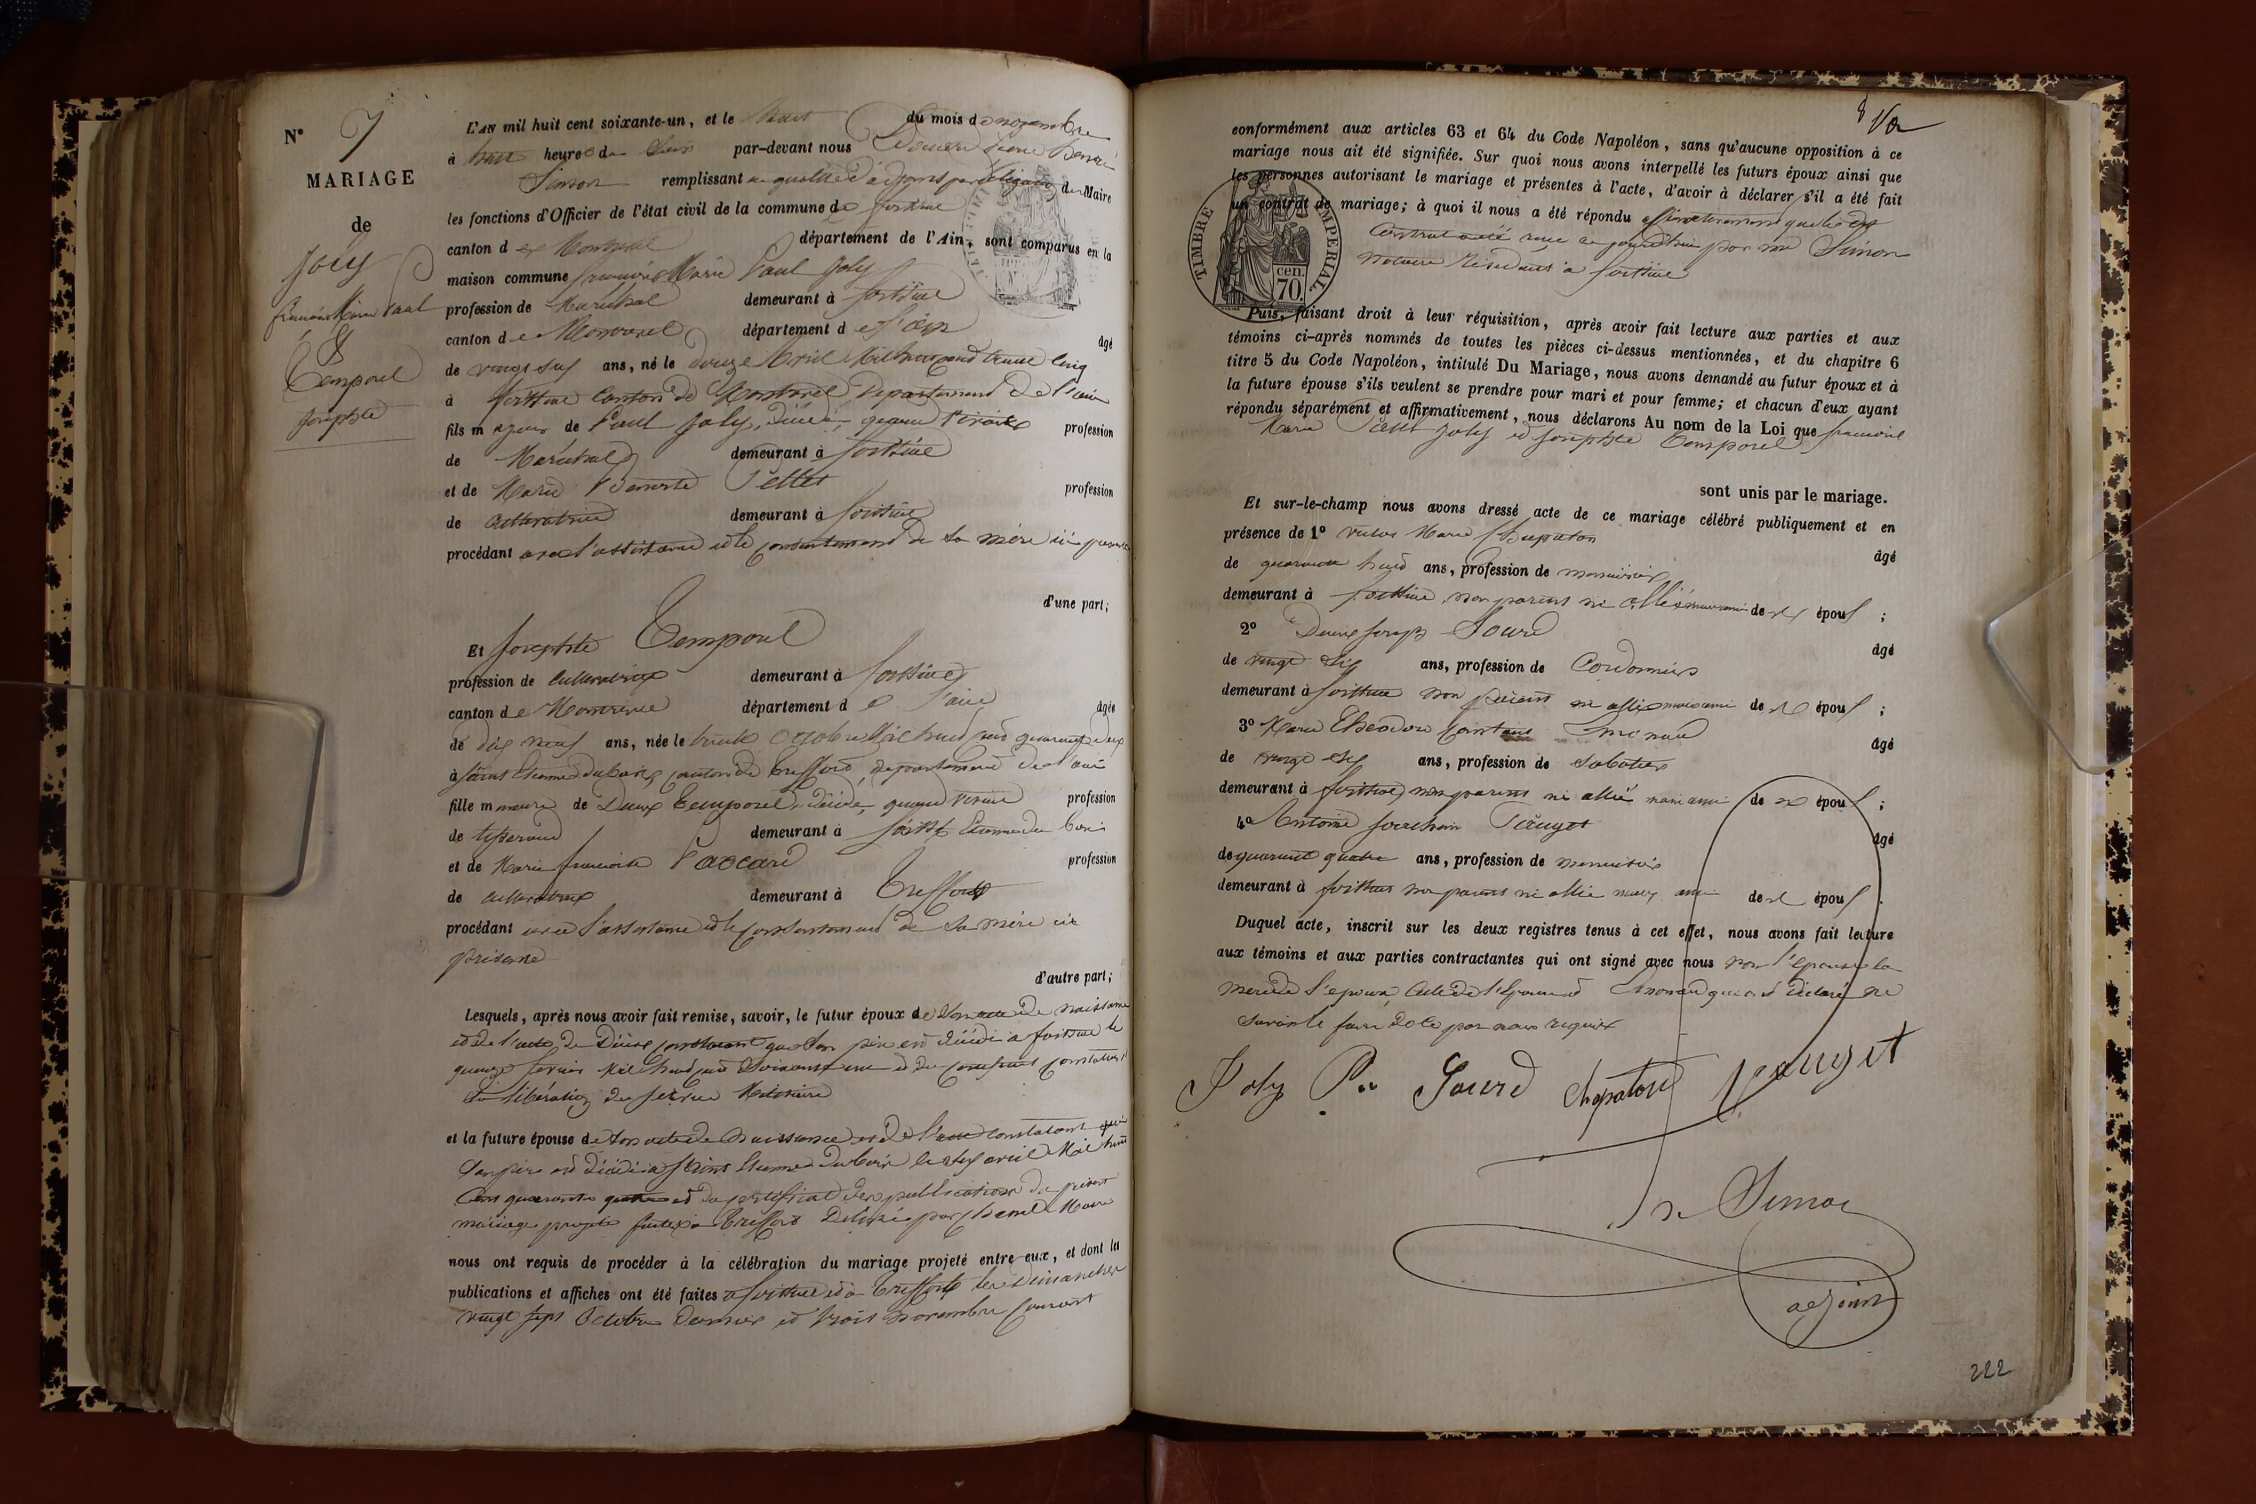 N° 7
MARIAGE
de
Joly
françois Marie Paul
&
Temporel
josephte
L'AN mil huit cent soixante-un, et le huit du mois de novembre
à huit heures du Soir par-devant nous Pierre
Simon remplissant en qualité d'adjoint par délégation du Maire
les fonctions d'Officier de l'état civil de la commune de
canton de Montrevel département de l'Ain, sont comparus en la
maison commune françois Marie Paul Joly
profession de Maréchal demeurant à
canton de Montrevel département de l'ain âgé
de vingt six ans, né le douze Avril Mil huit cent trente cinq
à canton de Montrevel Département De l'ain
fils majeur de Paul Joly, décédé, quand vivait profession
de Maréchal demeurant à
et de Marie profession
de cultivatrice demeurant à
procédant avec l'assistance et le consentement de sa mère ici présente
d'une part;
Et josephte Temporel
profession de cultivatrice demeurant à
canton de Montrevel département de l'ain âgée
de dix neuf ans, née le trente octobre Mil huit cent quarante deux
à Saint Etienne du bois canton de treffort, département de l'ain
fille mineure de Temporel, décédé, quand vivait profession
de tisserand demeurant à Saint Etienne du bois
et de Marie françoise Paccard profession
de cultivatrice demeurant à Treffort
procédant avec l'assistance et le consentement de sa mère ici
présente
d'autre part;
Lesquels, après nous avoir fait remise, savoir, le futur époux de son acte de naissance
et de l'acte de Décès constatant que son père est décédé à le
quinze février Mil huit cent soixante une et du certificat constatant
sa libération du service Militaire
et la future épouse de son acte de Naissance et de l'acte constatant que
son père est décédé à Saint Etienne du bois le six avril Mil huit
Cent quarante quatre et du certificat des publications du présent
mariage projeté faites à treffort Délivré par le Maire
nous ont requis de procéder à la célébration du mariage projeté entre eux, et dont les
publications et affiches ont été faites à et à treffort les Dimanches
vingt sept Octobre dernier et trois novembre courant
conformément aux articles 63 et 64 du Code Napoléon, sans qu'aucune opposition à ce
mariage nous ait été signifiée. Sur quoi nous avons interpellé les futurs époux ainsi que
les personnes autorisant le mariage et présentes à l'acte, d'avoir à déclarer s'il a été fait
un contrat de mariage; à quoi il nous a été répondu affirmativement que le dit
Contrat a été reçu ce jourd'hui par me Simon
notaire Résidant à
TIMBRE IMPERIAL
70 cen.
Puis, faisant droit à leur réquisition, après avoir fait lecture aux parties et aux
témoins ci-après nommés de toutes les pièces ci-dessus mentionnées, et du chapitre 6
titre 5 du Code Napoléon, intitulé Du Mariage, nous avons demandé au futur époux et à
la future épouse s'ils veulent se prendre pour mari et pour femme; et chacun d'eux ayant
répondu séparément et affirmativement, nous déclarons Au nom de la Loi que françois
Marie Paul Joly et josephte Temporel
sont unis par le mariage.
Et sur-le-champ nous avons dressé acte de ce mariage célébré publiquement et en
présence de 1° Marie Chapaton âgé
de quarante huit ans, profession de menuisier
demeurant à non parent ni allié mais ami de x époux ;
2° joseph Sourd âgé
de vingt six ans, profession de Cordonnier
demeurant à non parent ni allié mais ami de x époux ;
3° Marie Théodore Constant âgé
de vingt six ans, profession de Sabotier
demeurant à non parent ni allié mais ami de x époux ;
4° Antoine joachim Pauget âgé
de quarante quatre ans, profession de menuisier
demeurant à non parent ni allié mais ami de x époux .
Duquel acte, inscrit sur les deux registres tenus à cet effet, nous avons fait lecture
aux témoins et aux parties contractantes qui ont signé avec nous non l'épouse la
mère de l'époux, celle de l'épouse et qui ont déclaré ne
savoir le faire De ce par nous requis
Joly Pre Sourd Chapaton Pauget
Simon
adjoint
222